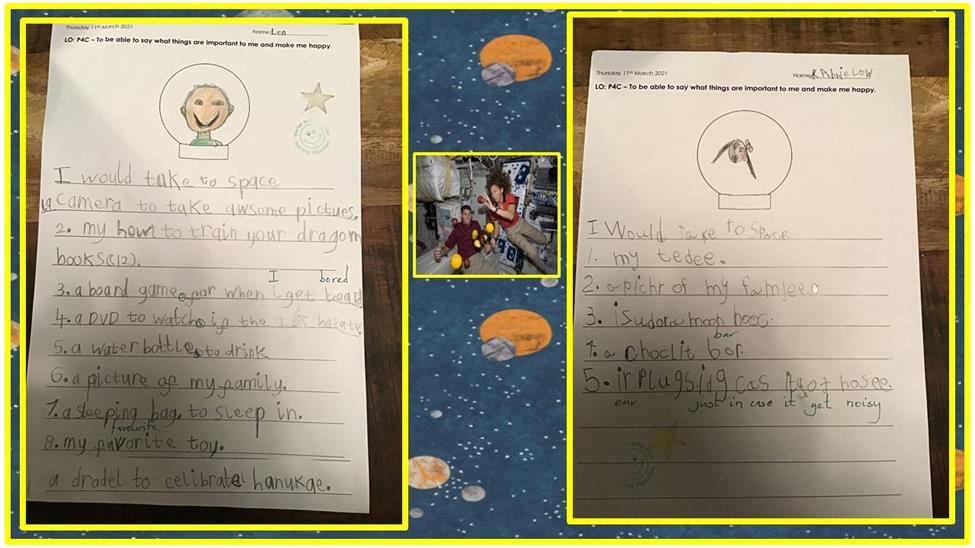 Thursday 11th March 2021
Name: Leo
LO: P4C – To be able to say what things are important to me and make me happy.
I would take to space
1. a camera to take awsome pictues.
2. my how to train your dragon
books (12).
I bored
3. a board game for when i get board
4. a DVD to watch if the ISS has a tv.
5. a water bottle to drink
6. a picture of my family.
7. a sleeping bag to sleep in.
favourite
8. my favorite toy.
a dradel to celibrate hanukae.
Thursday 11th March 2021
Name
LO: P4C – To be able to say what things are important to me and make me happy.
I Would take to space
1. my tedee.
2. a pichr of my famlee
3.
bar
4. a choclit bor.
5. ir plugs got nosee.
ear just in case it get noisy